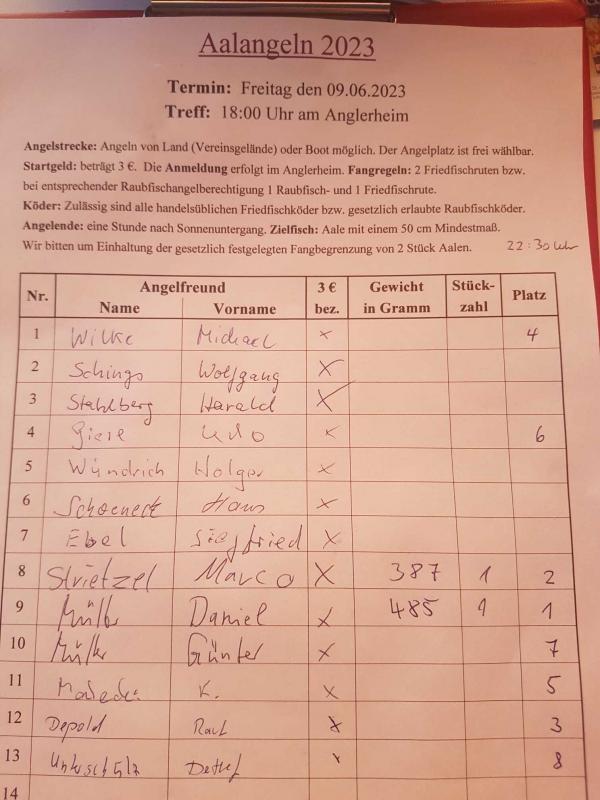 Aalangeln 2023
Termin: Freitag den 09.06.2023
Treff: 18:00 Uhr am Anglerheim
Angelstrecke: Angeln von Land (Vereinsgelände) oder Boot möglich. Der Angelplatz ist frei wählbar.
Startgeld: beträgt 3 €. Die Anmeldung erfolgt im Anglerheim. Fangregeln: 2 Friedfischruten bzw.
bei entsprechender Raubfischangelberechtigung 1 Raubfisch- und 1 Friedfischrute.
Köder: Zulässig sind alle handelsüblichen Friedfischköder bzw. gesetzlich erlaubte Raubfischköder.
Angelende: eine Stunde nach Sonnenuntergang. Zielfisch: Aale mit einem 50 cm Mindestmaß.
Wir bitten um Einhaltung der gesetzlich festgelegten Fangbegrenzung von 2 Stück Aalen. 22:30 Uhr
Nr. Angelfreund 3 € bez. Gewicht in Gramm Stück- zahl Platz
Name Vorname
1 Wilke Michael x 4
2 Schings Wolfgang x
3 Stahlberg Harald x
4 Giese Udo x 6
5 Wündrich Holger x
6 Schoeneck Hans x
7 Ebel Siegfried x
8 Strietzel Marco x 387 1 2
9 Müller Daniel x 485 1 1
10 Müller Günter x 7
11 K. x 5
12 Depold Ralf x 3
13 Detlef x 8
14